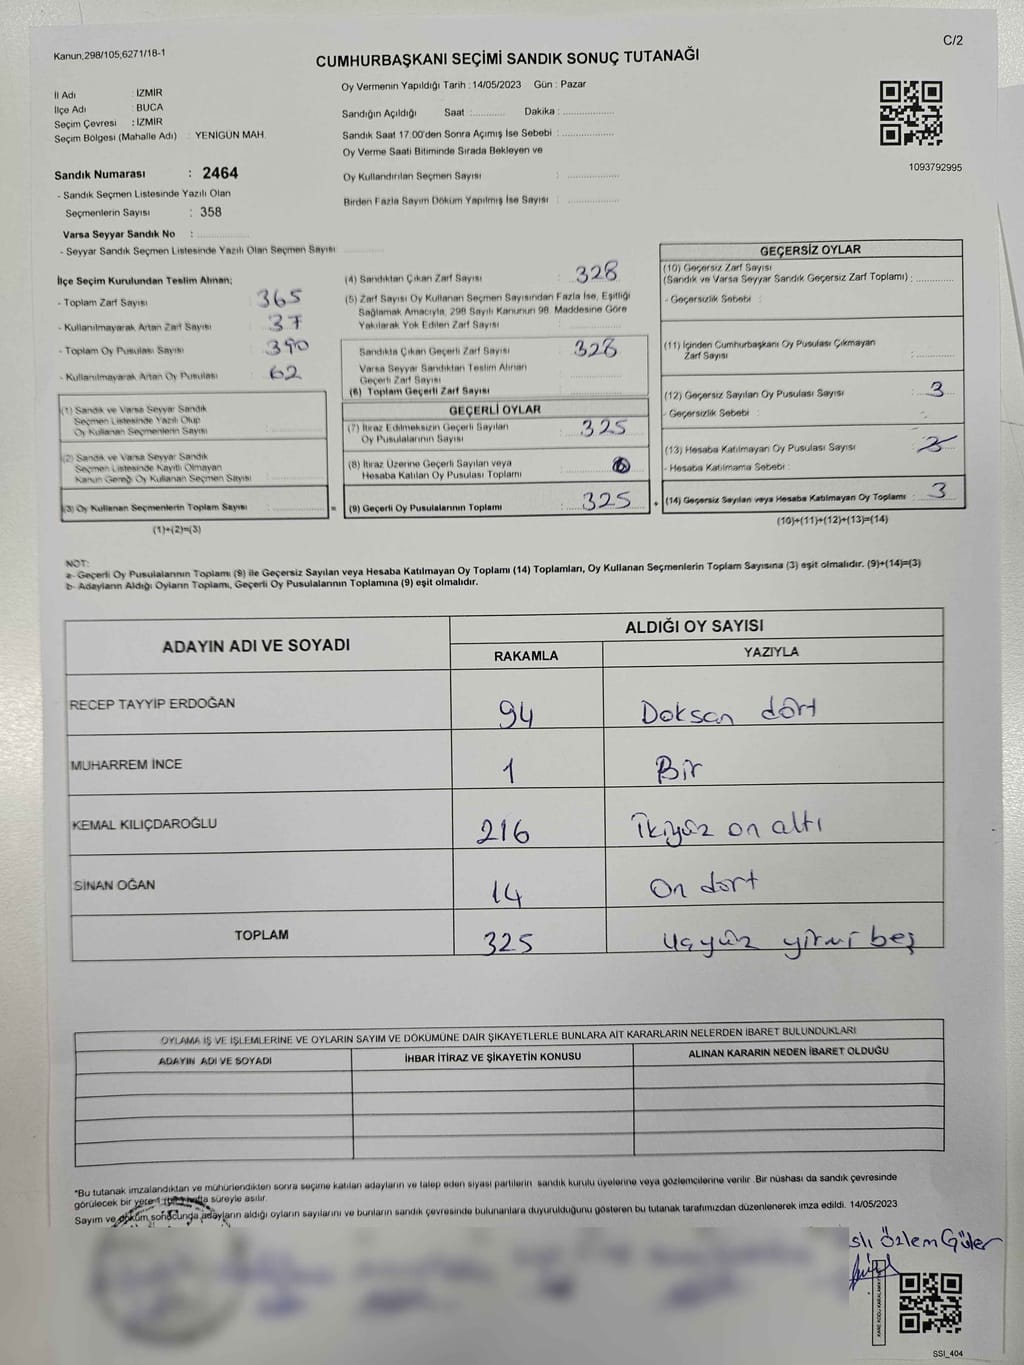 Kanun,298/105,6271/18-1
C/2
CUMHURBAŞKANI SEÇİMİ SANDIK SONUÇ TUTANAĞI
Oy Vermenin Yapıldığı Tarih : 14/05/2023 Gün : Pazar
İl Adı : İZMİR
İlçe Adı : BUCA
Seçim Çevresi : İZMİR
Seçim Bölgesi (Mahalle Adı) : YENİGÜN MAH.
Sandık Numarası : 2464
- Sandık Seçmen Listesinde Yazılı Olan
Seçmenlerin Sayısı : 358
Varsa Seyyar Sandık No :
- Seyyar Sandık Seçmen Listesinde Yazılı Olan Seçmen Sayısı
Sandığın Açıldığı Saat : Dakika :
Sandık Saat 17:00'den Sonra Açımış İse Sebebi :
Oy Verme Saati Bitiminde Sırada Bekleyen ve
Oy Kullandırılan Seçmen Sayısı :
Birden Fazla Sayım Döküm Yapılmış İse Sayısı :
1093792995
İlçe Seçim Kurulundan Teslim Alınan;
- Toplam Zarf Sayısı : 365
- Kullanılmayarak Artan Zarf Sayısı : 37
- Toplam Oy Pusulası Sayısı : 390
- Kullanılmayarak Artan Oy Pusulası : 62
(1) Sandık ve Varsa Seyyar Sandık
Seçmen Listesinde Yazılı Olup
Oy Kullanan Seçmenlerin Sayısı
(2) Sandık ve Varsa Seyyar Sandık
Seçmen Listesinde Kayıtlı Olmayan
Kanun Gereği Oy Kullanan Seçmen Sayısı
(3) Oy Kullanan Seçmenlerin Toplam Sayısı :
(1)+(2)=(3)
(4) Sandıktan Çıkan Zarf Sayısı : 328
(5) Zarf Sayısı Oy Kullanan Seçmen Sayısından Fazla İse, Eşitliği
Sağlamak Amacıyla, 298 Sayılı Kanunun 98. Maddesine Göre
Yakılarak Yok Edilen Zarf Sayısı :
Sandıkta Çıkan Geçerli Zarf Sayısı : 328
Varsa Seyyar Sandıktan Teslim Alınan
Geçerli Zarf Sayısı
(6) Toplam Geçerli Zarf Sayısı
GEÇERLİ OYLAR
(7) İtiraz Edilmeksizin Geçerli Sayılan
Oy Pusulalarının Sayısı : 325
(8) İtiraz Üzerine Geçerli Sayılan veya
Hesaba Katılan Oy Pusulası Toplamı
(9) Geçerli Oy Pusulalarının Toplamı : 325
GEÇERSİZ OYLAR
(10) Geçersiz Zarf Sayısı
(Sandık ve Varsa Seyyar Sandık Geçersiz Zarf Toplamı) :
- Geçersizlik Sebebi :
(11) İçinden Cumhurbaşkanı Oy Pusulası Çıkmayan
Zarf Sayısı :
(12) Geçersiz Sayılan Oy Pusulası Sayısı : 3
- Geçersizlik Sebebi :
(13) Hesaba Katılmayan Oy Pusulası Sayısı :
- Hesaba Katılmama Sebebi :
(14) Geçersiz Sayılan veya Hesaba Katılmayan Oy Toplamı : 3
(10)+(11)+(12)+(13)=(14)
NOT:
a- Geçerli Oy Pusulalarının Toplamı (9) ile Geçersiz Sayılan veya Hesaba Katılmayan Oy Toplamı (14) Toplamları, Oy Kullanan Seçmenlerin Toplam Sayısına (3) eşit olmalıdır. (9)+(14)=(3)
b- Adayların Aldığı Oyların Toplamı, Geçerli Oy Pusulalarının Toplamına (9) eşit olmalıdır.
ADAYIN ADI VE SOYADI ALDIĞI OY SAYISI
RAKAMLA YAZIYLA
RECEP TAYYİP ERDOĞAN 94 Doksan dört
MUHARREM İNCE 1 Bir
KEMAL KILIÇDAROĞLU 216 İkiyüz on altı
SİNAN OĞAN 14 On dört
TOPLAM 325 üçyüz yirmi beş
OYLAMA İŞ VE İŞLEMLERİNE VE OYLARIN SAYIM VE DÖKÜMÜNE DAİR ŞİKAYETLERLE BUNLARA AİT KARARLARIN NELERDEN İBARET BULUNDUKLARI
ADAYIN ADI VE SOYADI İHBAR İTİRAZ VE ŞİKAYETİN KONUSU ALINAN KARARIN NEDEN İBARET OLDUĞU
*Bu tutanak imzalandıktan ve mühürlendikten sonra seçime katılan adayların ve talep eden siyasi partilerin sandık kurulu üyelerine veya gözlemcilerine verilir. Bir nüshası da sandık çevresinde
görülecek bir yere 1 (bir) hafta süreyle asılır.
Sayım ve döküm sonucunda adayların aldığı oyların sayılarını ve bunların sandık çevresinde bulunanlara duyurulduğunu gösteren bu tutanak tarafımızdan düzenlenerek imza edildi. 14/05/2023
slı Özlem Güler
KARE KODU KARALAMAYINIZ
SSI_404